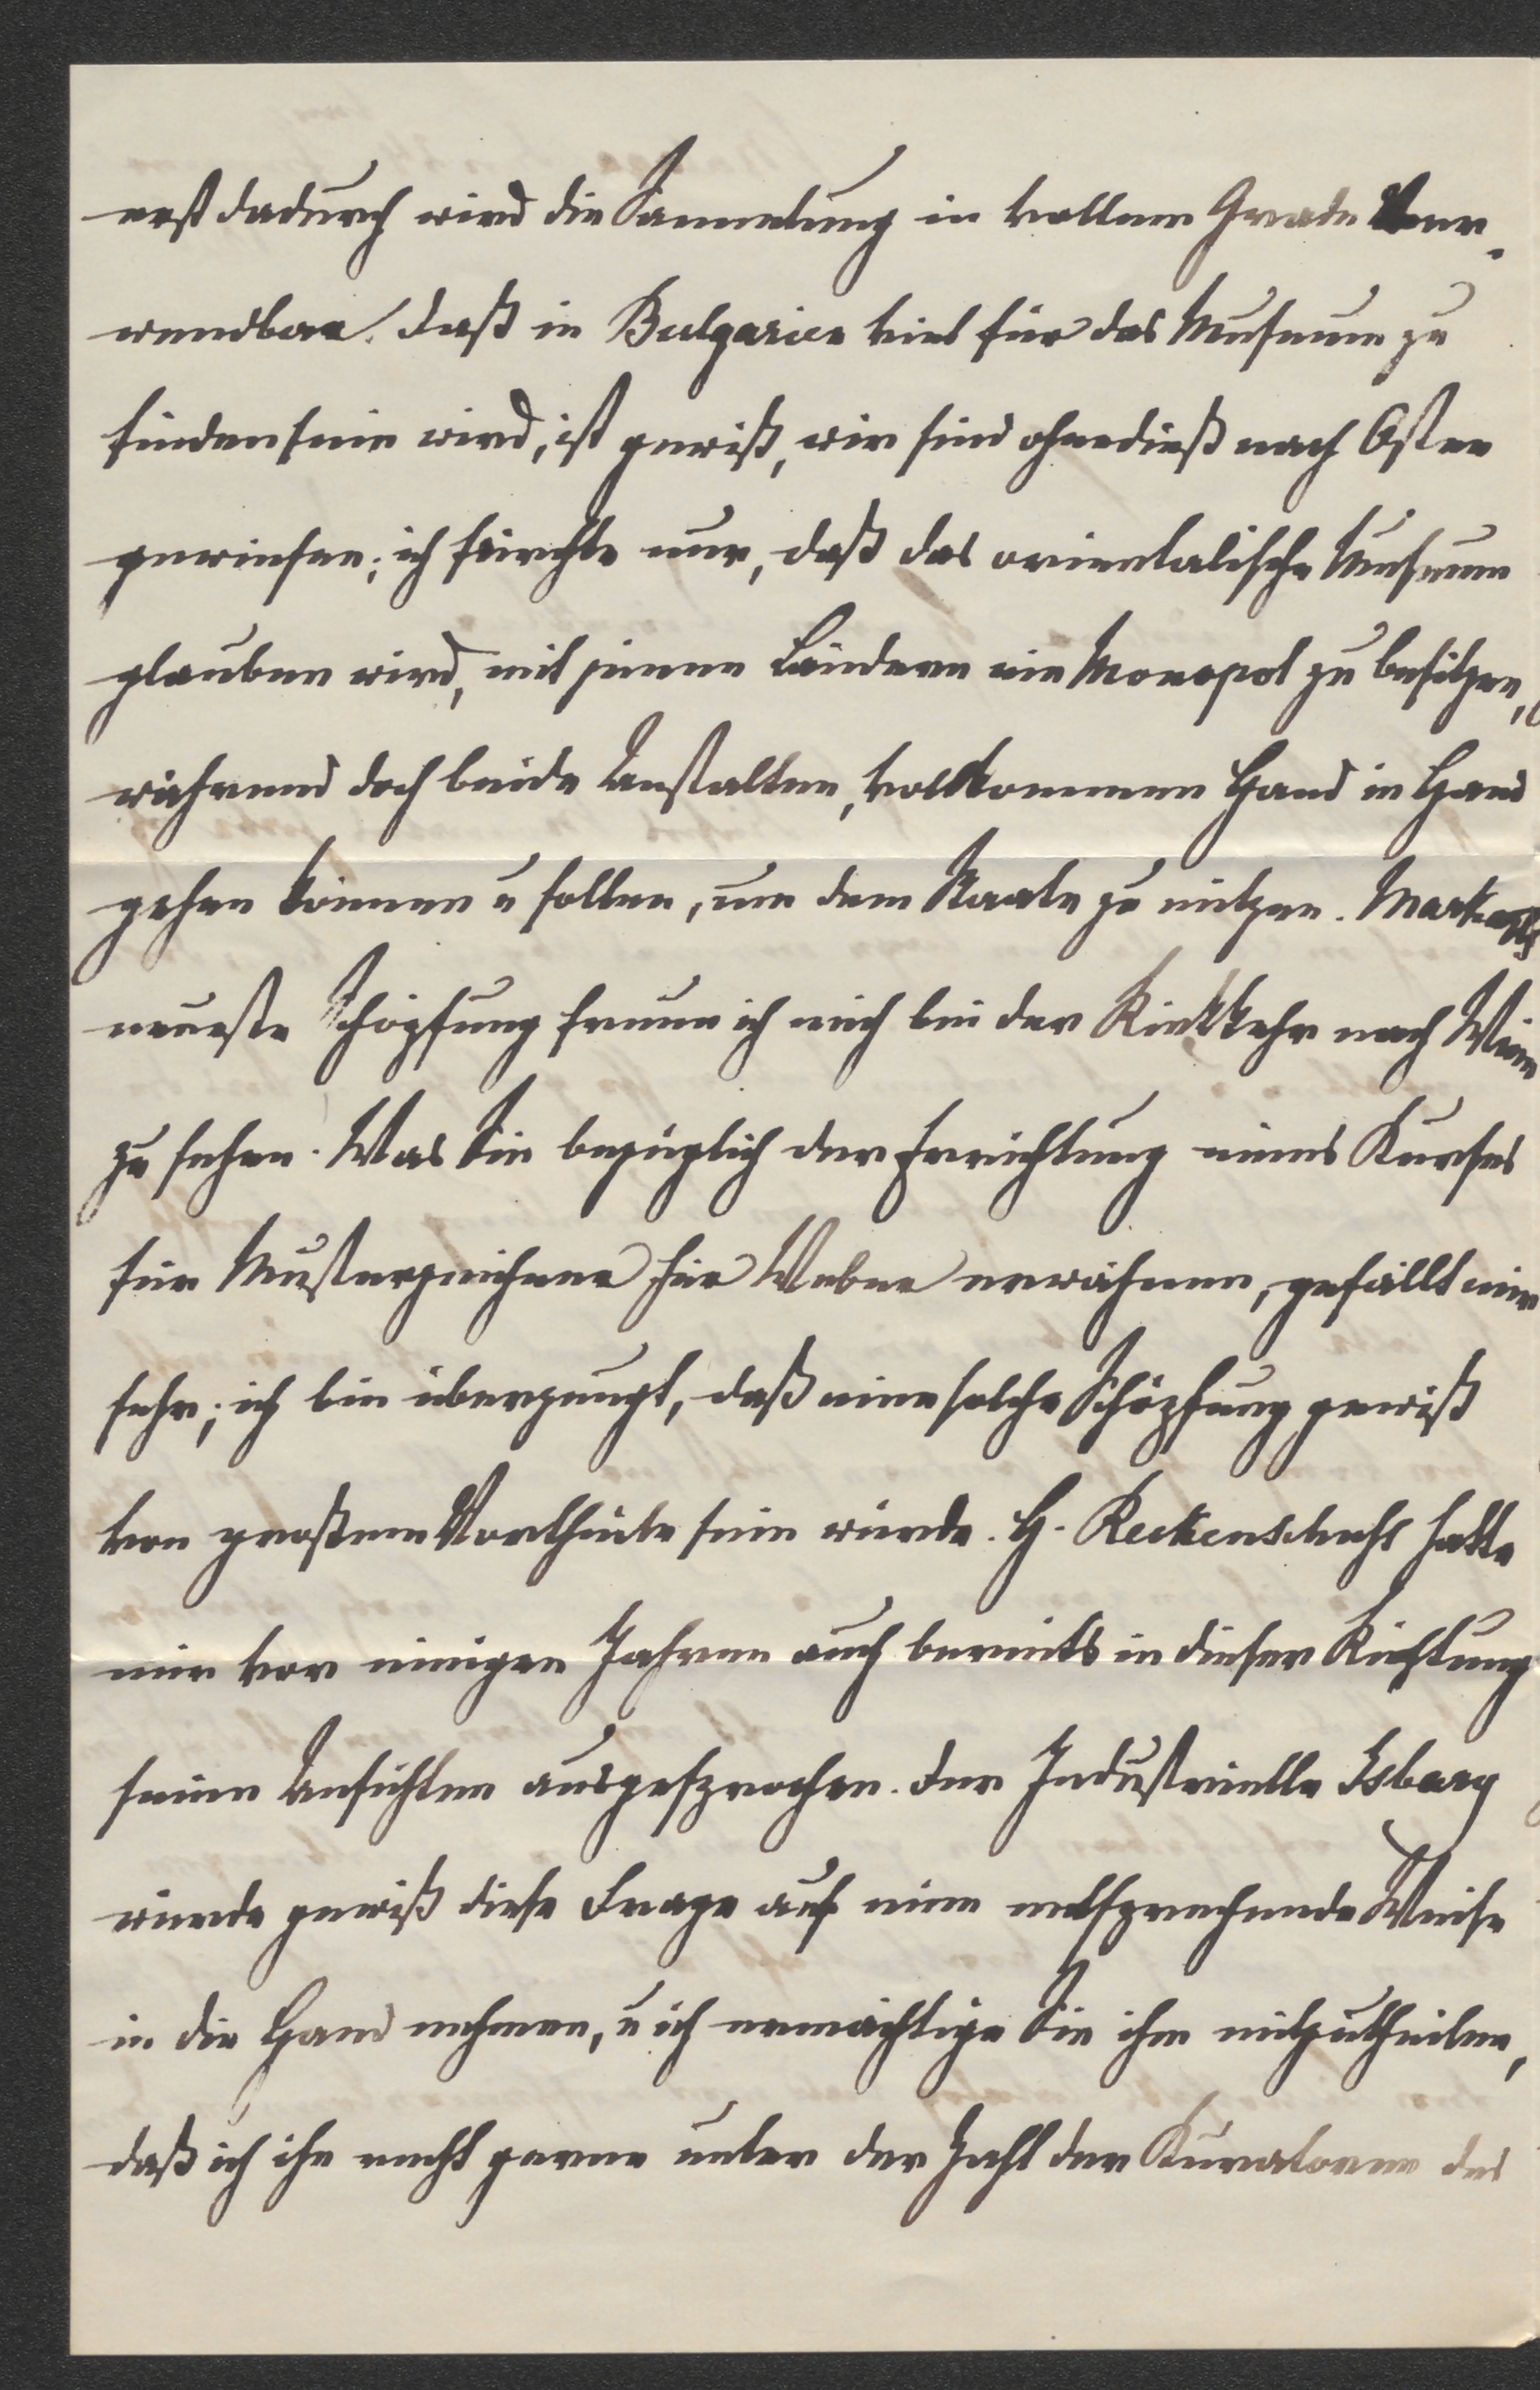 erst dadurch wird die Sammlung in vollem Grade ver-
wendbar. Daß in Bulgarien viel für das Museum zu
finden sein wird, ist gewiß, wir sind ohnedieß nach Osten
gewiesen; ich fürchte nur, daß das orientalische Museum
glauben wird, mit jenen Ländern ein Monopol zu besitzen,
während doch beide Anstalten, vollkommen Hand in Hand
gehen können u sollen, um dem Staate zu nützen. Markarts
neueste Schöpfung freue ich mich bei der Rückkehr nach Wien
zu sehen. Was Sie bezüglich der Errichtung eines Kurses
für Musterzeichner für Weber erwähnen, gefällt mir
sehr; ich bin überzeugt, daß eine solche Schöpfung gewiß
von großem Vortheile sein würde. H. Reckenschuhs hatte
mir vor einigen Jahren auch bereits in dieser Richtung
seine Ansichten ausgesprochen. Der Industrielle Isbary
würde gewiß diese Frage auf eine entsprechende Weise
in die Hand nehmen, u ich ermächtige Sie ihm mitzutheilen,
daß ich ihn recht gerne unter der Zahl der Kuratoren des